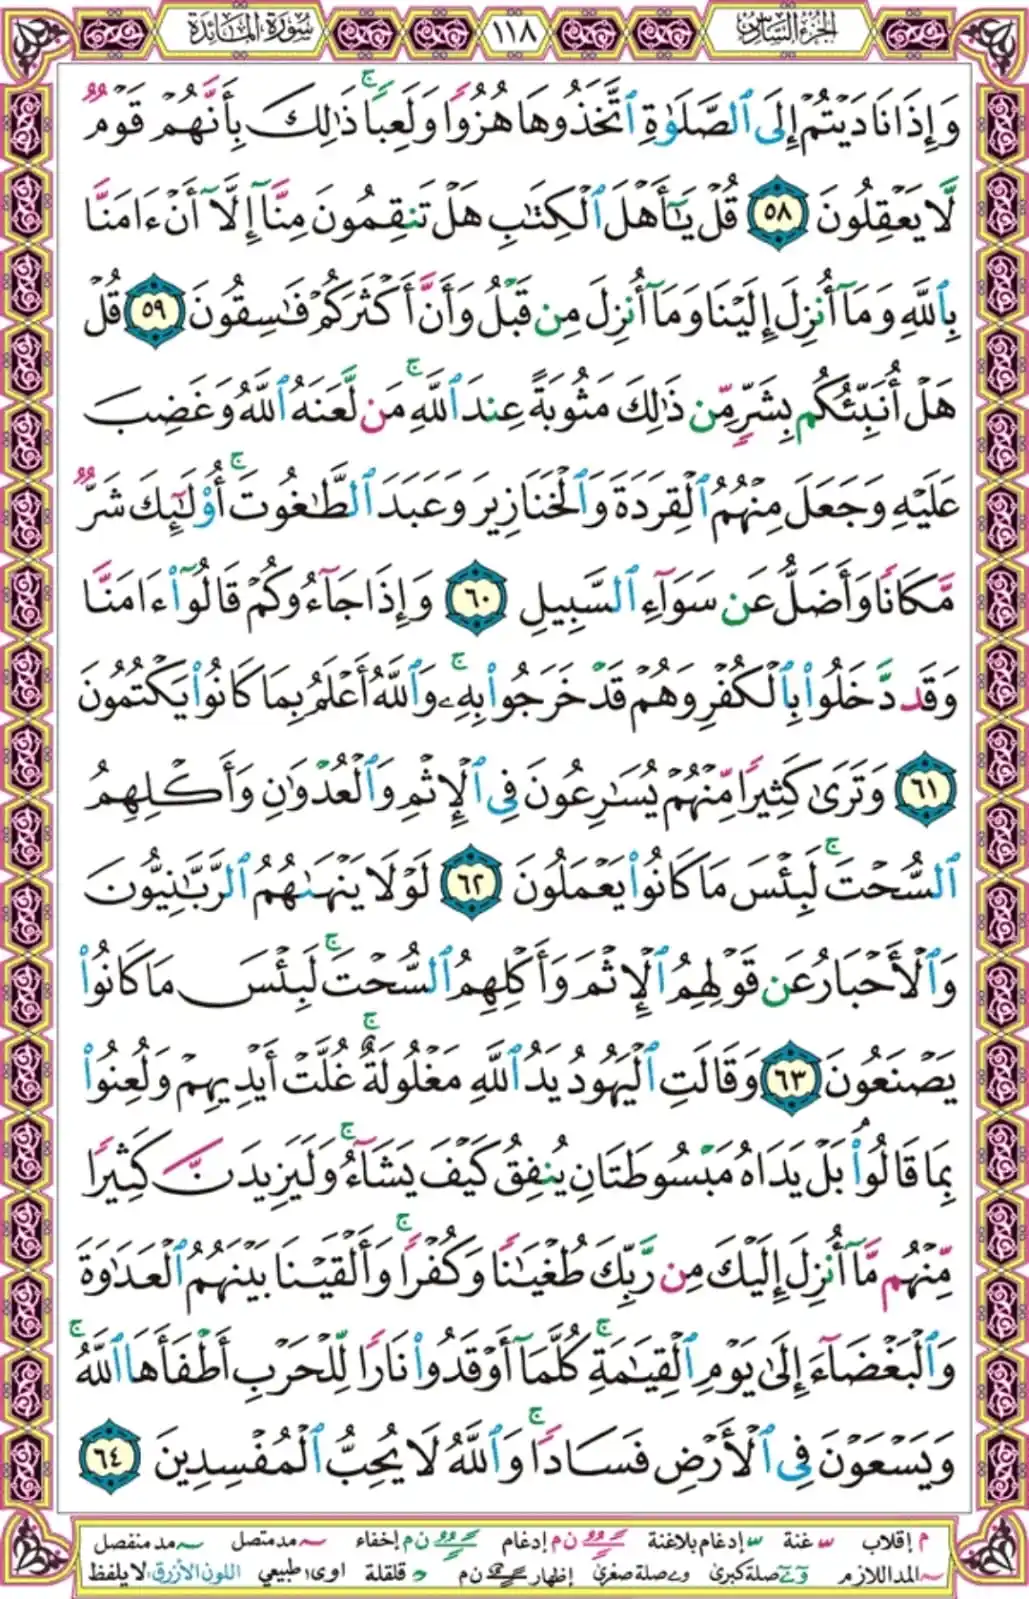 الجزء السادس
١١٨
سورة المائدة
وَإِذَا نَادَيْتُمْ إِلَى ٱلصَّلَوٰةِ ٱتَّخَذُوهَا هُزُوًا وَلَعِبًا ۚ ذَٰلِكَ بِأَنَّهُمْ قَوْمٌ
لَّا يَعْقِلُونَ ٥٨ قُلْ يَـٰٓأَهْلَ ٱلْكِتَـٰبِ هَلْ تَنقِمُونَ مِنَّآ إِلَّآ أَنْ ءَامَنَّا
بِٱللَّهِ وَمَآ أُنزِلَ إِلَيْنَا وَمَآ أُنزِلَ مِن قَبْلُ وَأَنَّ أَكْثَرَكُمْ فَـٰسِقُونَ ٥٩ قُلْ
هَلْ أُنَبِّئُكُم بِشَرٍّ مِّن ذَٰلِكَ مَثُوبَةً عِندَ ٱللَّهِ ۚ مَن لَّعَنَهُ ٱللَّهُ وَغَضِبَ
عَلَيْهِ وَجَعَلَ مِنْهُمُ ٱلْقِرَدَةَ وَٱلْخَنَازِيرَ وَعَبَدَ ٱلطَّـٰغُوتَ ۚ أُو۟لَـٰٓئِكَ شَرٌّ
مَّكَانًا وَأَضَلُّ عَن سَوَآءِ ٱلسَّبِيلِ ٦٠ وَإِذَا جَآءُوكُمْ قَالُوٓا۟ ءَامَنَّا
وَقَد دَّخَلُوا۟ بِٱلْكُفْرِ وَهُمْ قَدْ خَرَجُوا۟ بِهِۦ ۚ وَٱللَّهُ أَعْلَمُ بِمَا كَانُوا۟ يَكْتُمُونَ
٦١ وَتَرَىٰ كَثِيرًا مِّنْهُمْ يُسَـٰرِعُونَ فِى ٱلْإِثْمِ وَٱلْعُدْوَٰنِ وَأَكْلِهِمُ
ٱلسُّحْتَ ۚ لَبِئْسَ مَا كَانُوا۟ يَعْمَلُونَ ٦٢ لَوْلَا يَنْهَىٰهُمُ ٱلرَّبَّـٰنِيُّونَ
وَٱلْأَحْبَارُ عَن قَوْلِهِمُ ٱلْإِثْمَ وَأَكْلِهِمُ ٱلسُّحْتَ ۚ لَبِئْسَ مَا كَانُوا۟
يَصْنَعُونَ ٦٣ وَقَالَتِ ٱلْيَهُودُ يَدُ ٱللَّهِ مَغْلُولَةٌ ۚ غُلَّتْ أَيْدِيهِمْ وَلُعِنُوا۟
بِمَا قَالُوا۟ ۘ بَلْ يَدَاهُ مَبْسُوطَتَانِ يُنفِقُ كَيْفَ يَشَآءُ ۚ وَلَيَزِيدَنَّ كَثِيرًا
مِّنْهُم مَّآ أُنزِلَ إِلَيْكَ مِن رَّبِّكَ طُغْيَـٰنًا وَكُفْرًا ۚ وَأَلْقَيْنَا بَيْنَهُمُ ٱلْعَدَٰوَةَ
وَٱلْبَغْضَآءَ إِلَىٰ يَوْمِ ٱلْقِيَـٰمَةِ ۚ كُلَّمَآ أَوْقَدُوا۟ نَارًا لِّلْحَرْبِ أَطْفَأَهَا ٱللَّهُ ۚ
وَيَسْعَوْنَ فِى ٱلْأَرْضِ فَسَادًا ۚ وَٱللَّهُ لَا يُحِبُّ ٱلْمُفْسِدِينَ ٦٤
م إقلاب غنة إدغام بلاغنة ن م إدغام ن م إخفاء مد متصل مد منفصل
المد اللازم صلة كبرى صلة صغرى إظهار ن م قلقلة اوى طبيعي اللون الأزرق: لا يلفظ